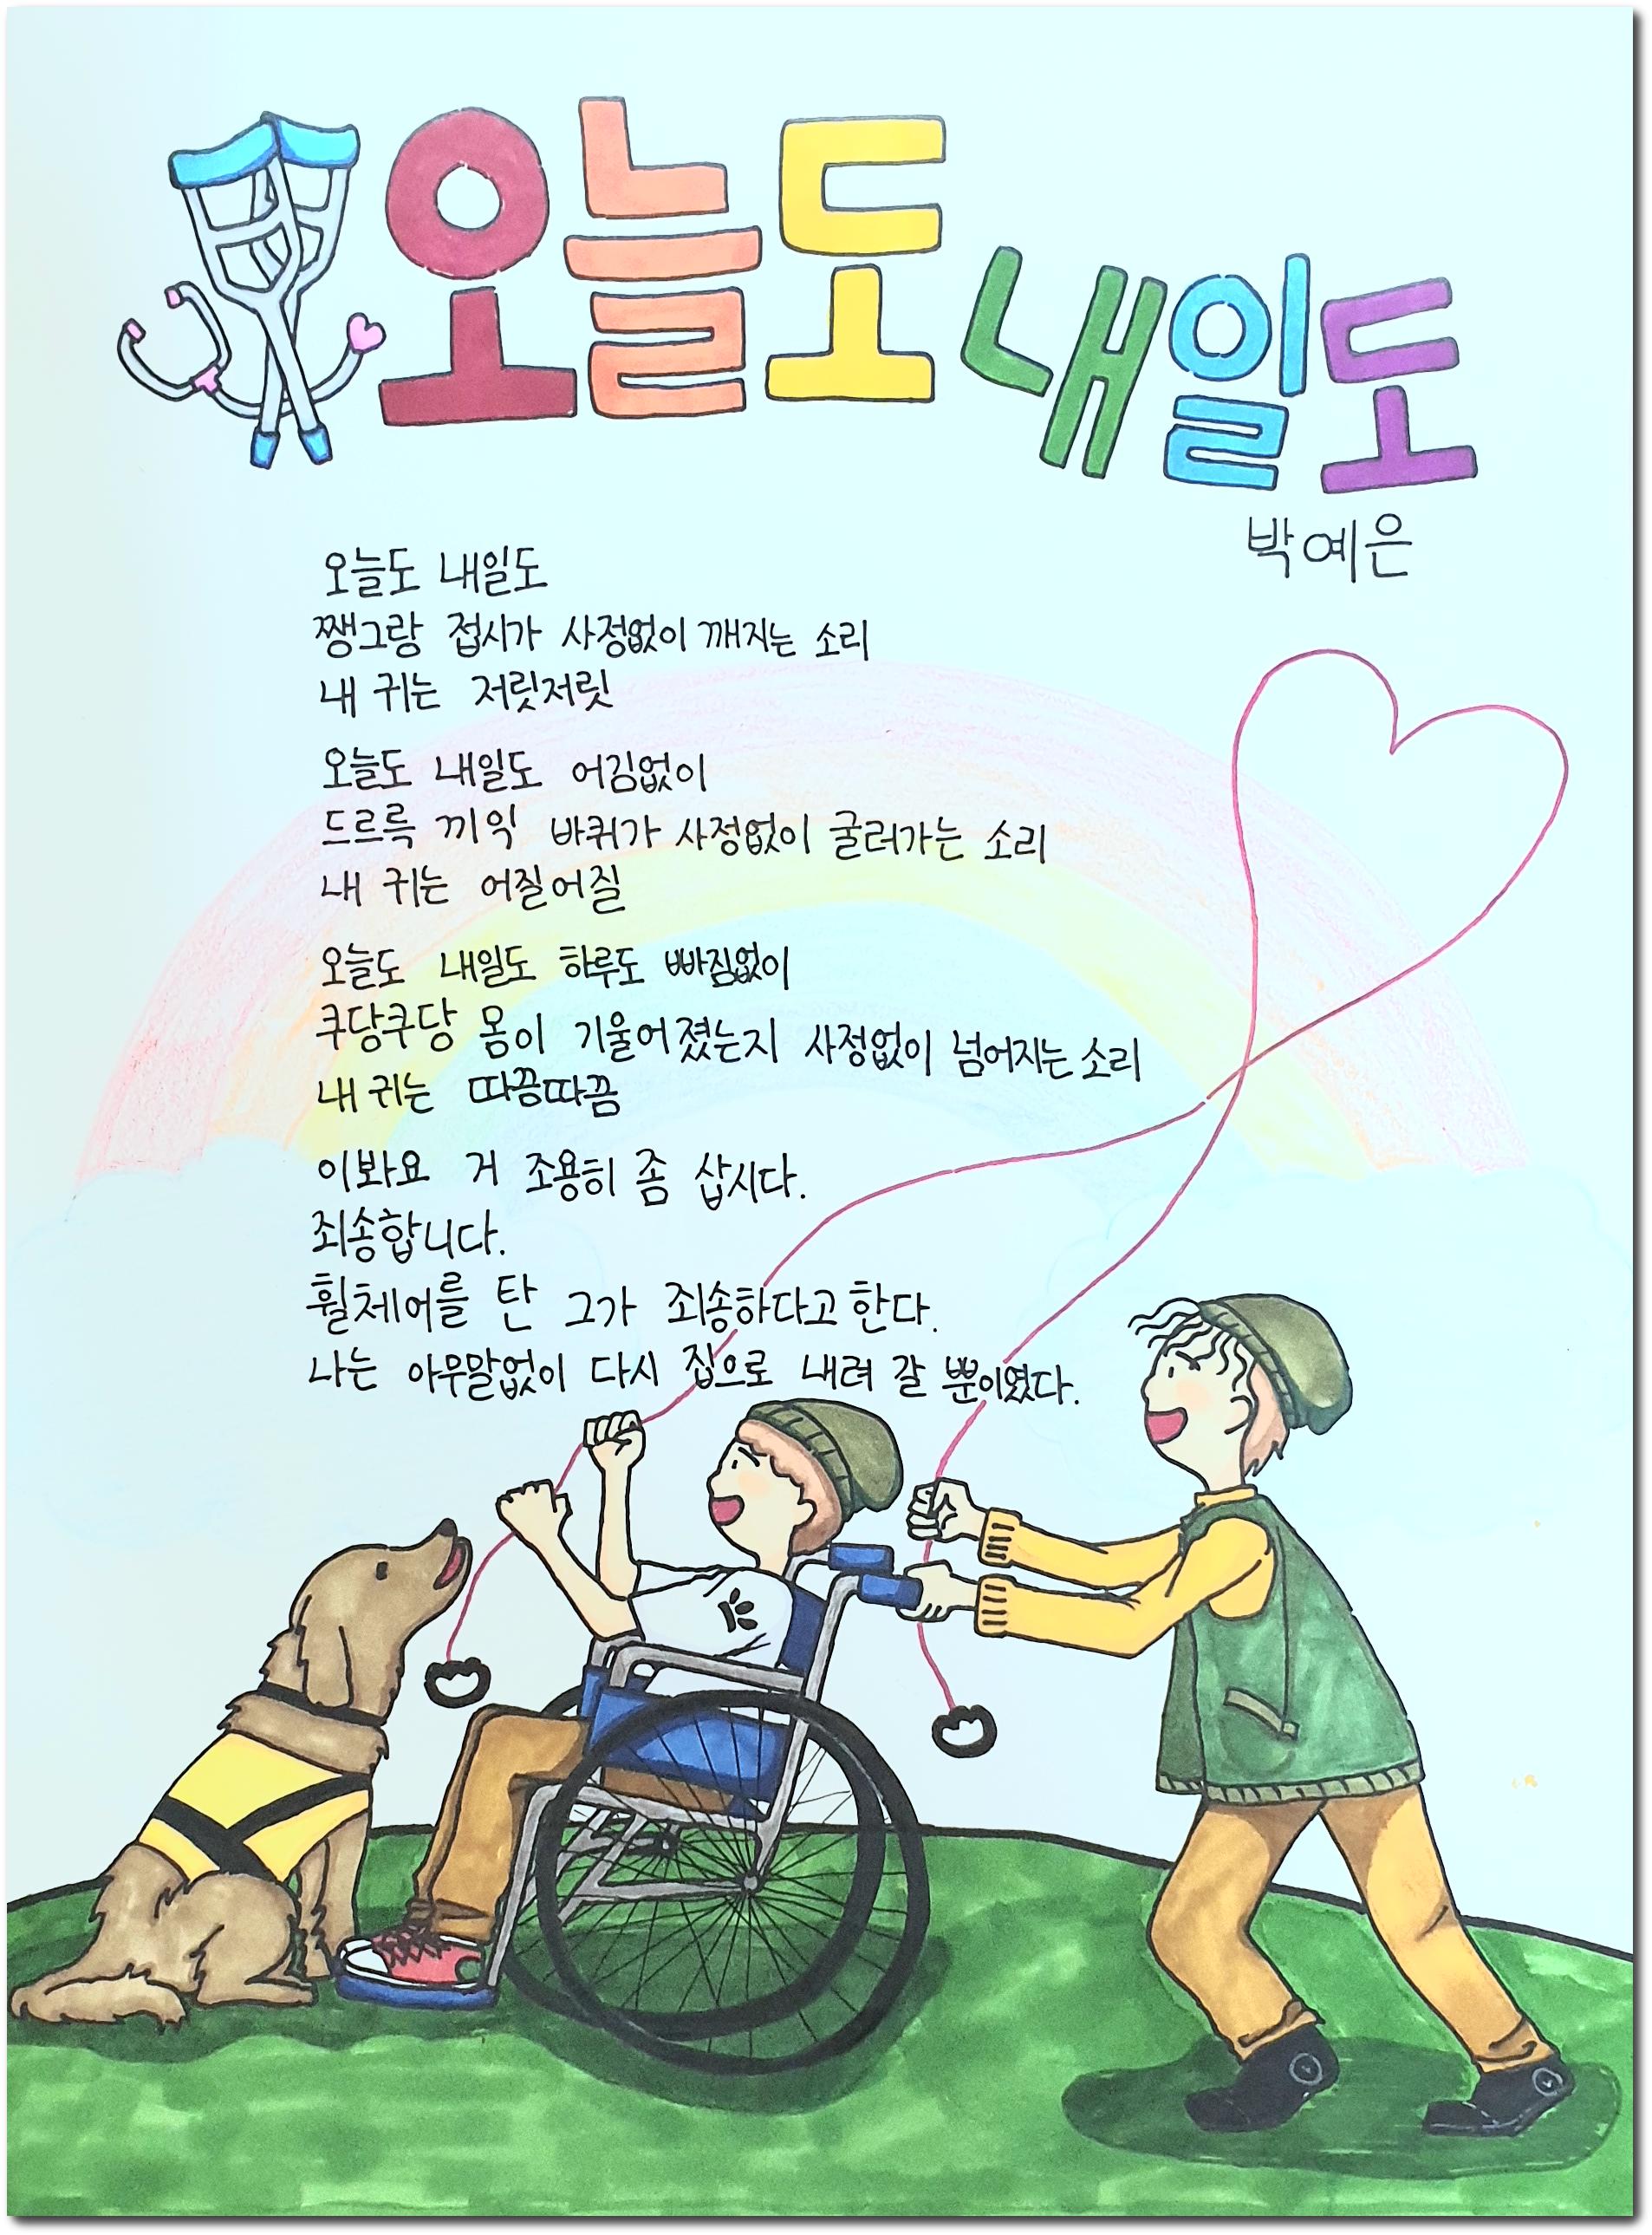 오늘도 내일도
박예은
오늘도 내일도
쨍그랑 접시가 사정없이 깨지는 소리
내 귀는 저릿저릿
오늘도 내일도 어김없이
드르륵 끼익 바퀴가 사정없이 굴러가는 소리
내 귀는 어질어질
오늘도 내일도 하루도 빠짐없이
쿠당쿠당 몸이 기울어졌는지 사정없이 넘어지는 소리
내 귀는 따끔따끔
이봐요 거 조용히 좀 삽시다.
죄송합니다.
휠체어를 탄 그가 죄송하다고 한다.
나는 아무말없이 다시 집으로 내려 갈 뿐이였다.